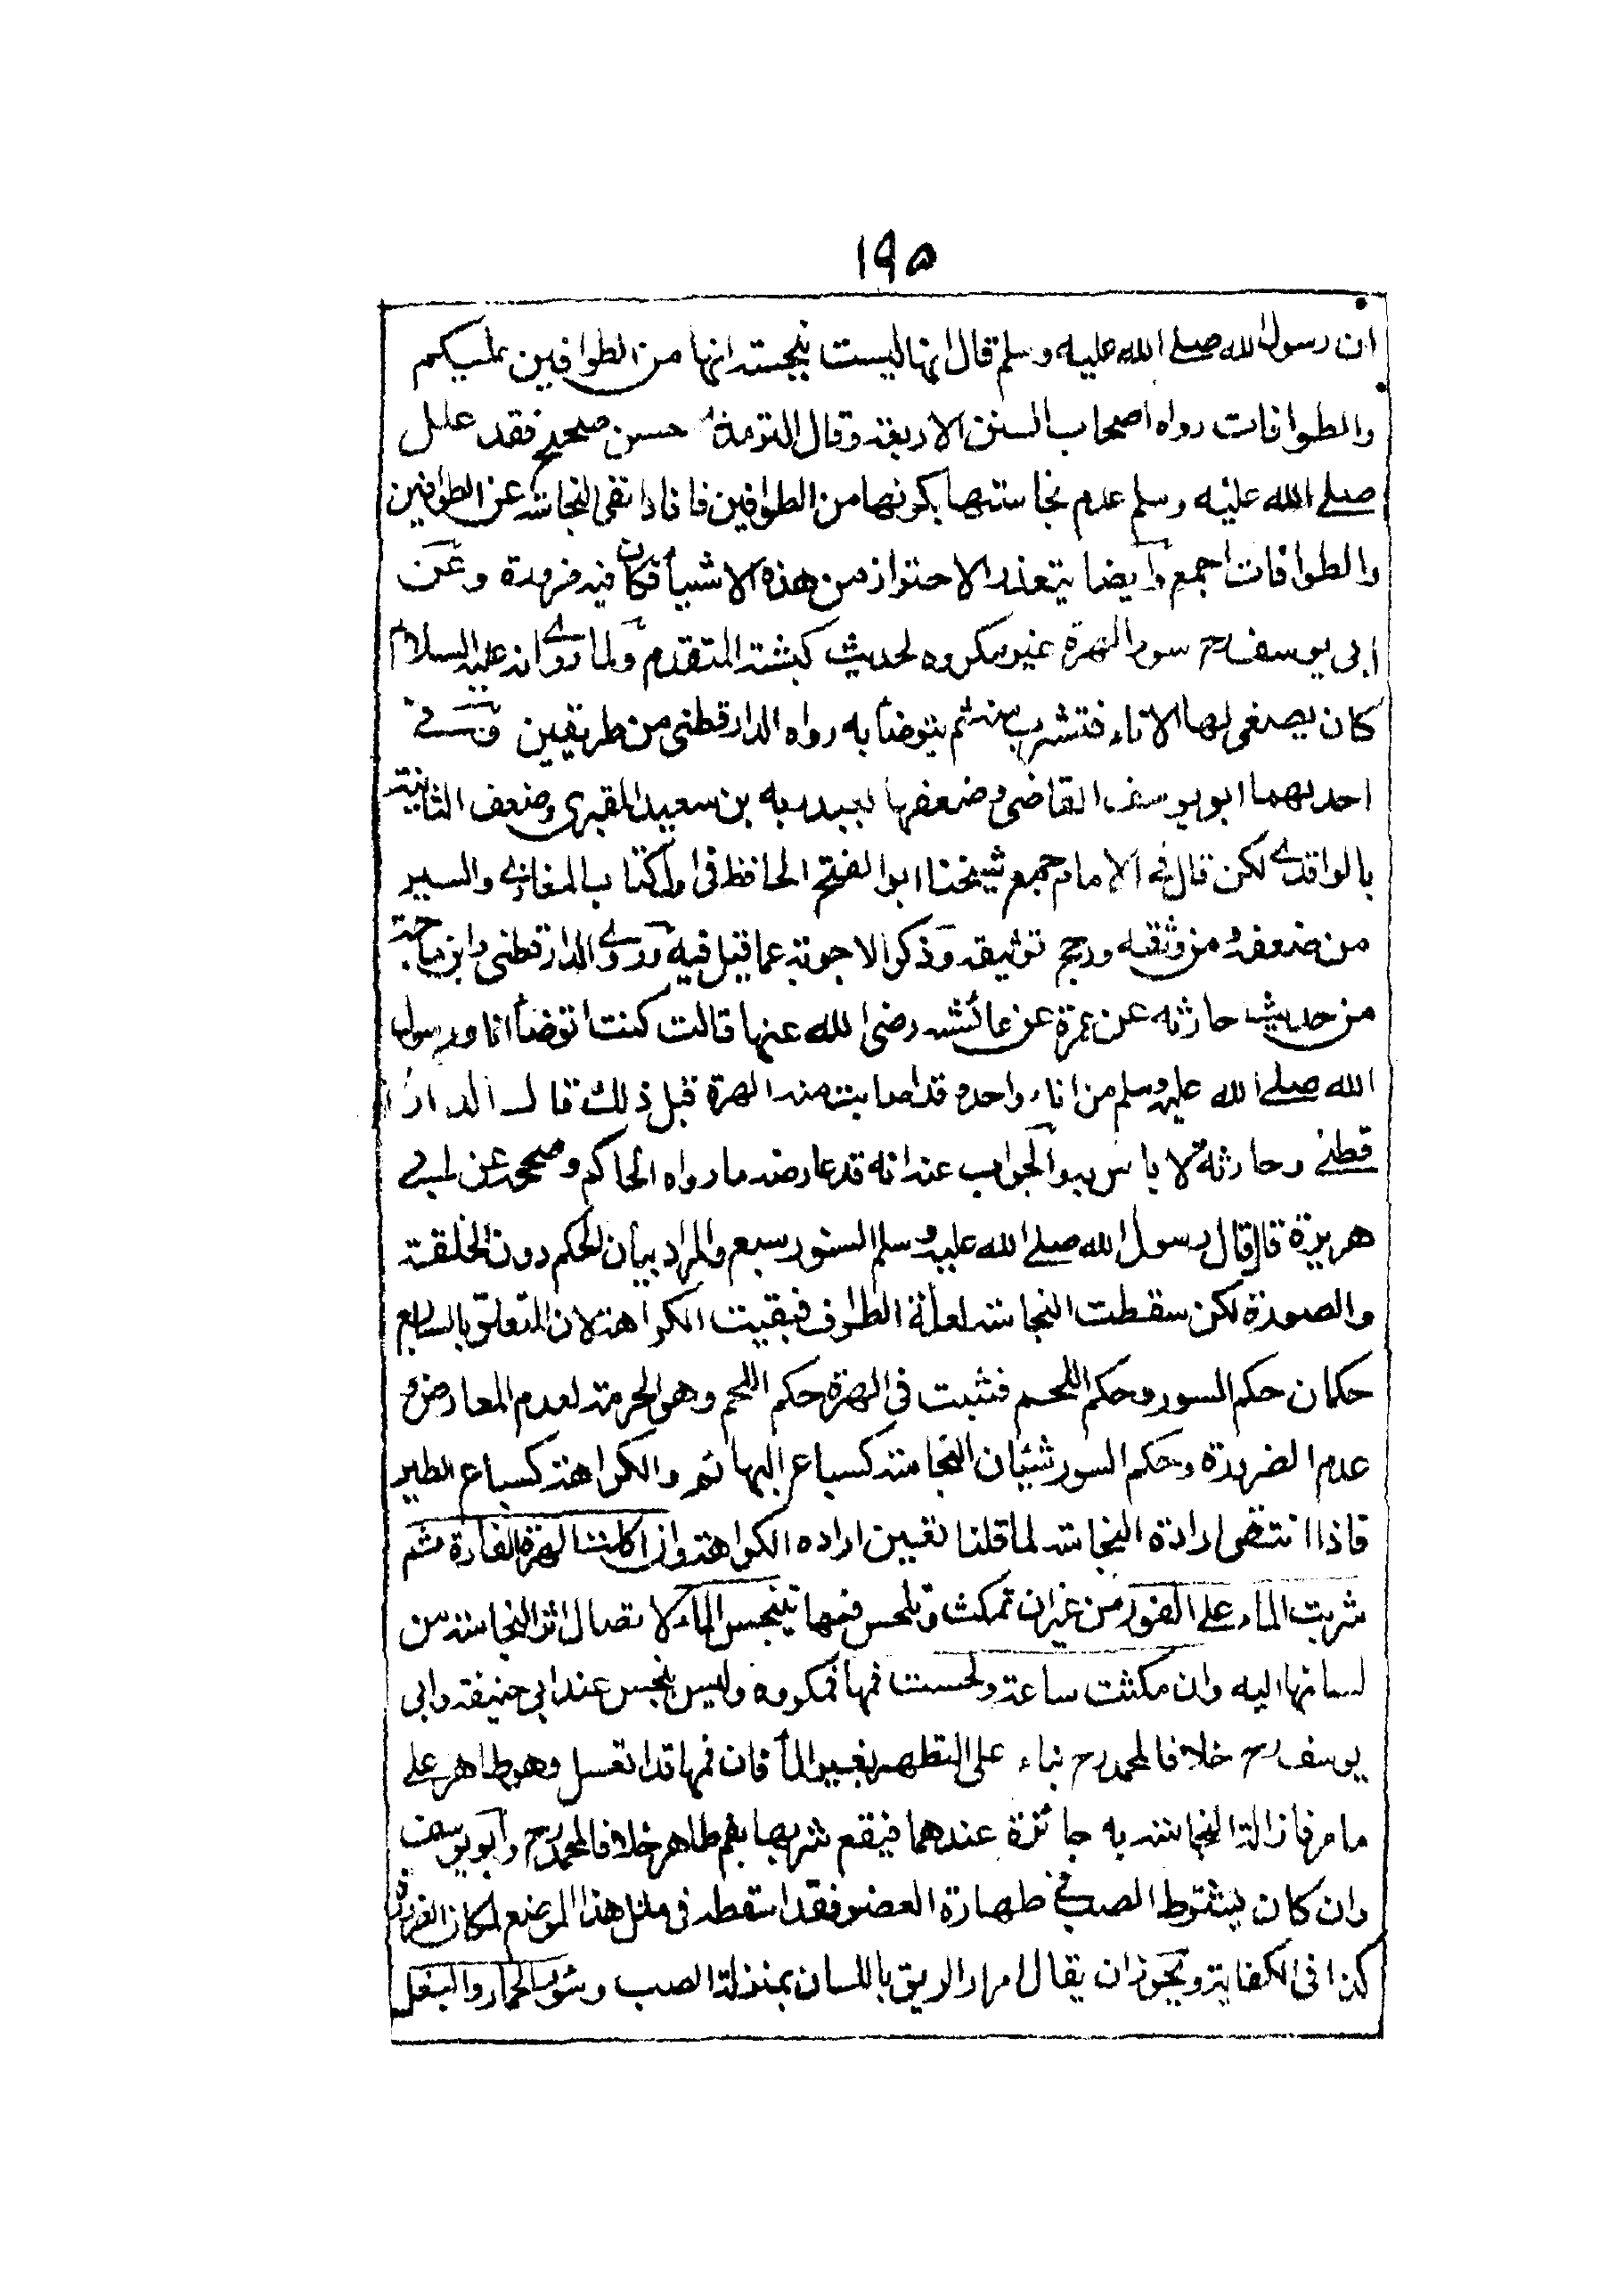 ١٩٥
ان رسول الله صلے الله عليه وسلم قال انها ليست بنجسته انها من الطوافين عليكم
والطوافات رواه اصحاب السنن الاربعة وقال الترمذي حسن صحيح فقد علل
صلے الله عليه وسلم عدم نجاستها بكونها من الطوافين فافاد نفى النجاسة عن الطوافين
والطوافات اجمع وايضا يتعذر الاحتراز من هذه الاشياء فكان فيه ضرورة وعن
ابى يوسف رح سور الهرة غير مكروه لحديث كبشته المتقدم ولما روى انه عليه السلام
كان يصغى لها الاناء فتشرب منه ثم يتوضأ به رواه الدارقطنى من طريقين وفے
احديهما ابو يوسف القاضى وضعفها بعبد ربه بن سعيد المقبرى وضعف الثانية
بالواقدے لكن قال فے الامام جمع شيخنا ابو الفتح الحافظ فى اول كتاب المغازے والسير
من ضعفه ومن وثقه ورجح توثيقه وذكر الاجوبة عما قيل فيه وروے الدارقطنى وابن ماجة
من حديث حارثه عن عمرة عن عائشه رضى الله عنها قالت كنت اتوضأ انا ورسول
الله صلے الله عليه وسلم من اناء واحد وقد اصابت منه الهرة قبل ذلك قال الدار
قطنے وحارثة لا باس به والجواب عنه انه قد عارضه ما رواه الحاكم وصححه عن ابے
هريرة قال قال رسول الله صلے الله عليه وسلم السنور سبع والمراد بيان الحكم دون الخلقة
والصورة لكن سقطت النجاسة لعلة الطواف فبقيت الكراهة لان المتعلق بالسباع
حكمان حكم السور وحكم اللحم فثبت فى الهرة حكم اللحم وهو الحرمة لعدم المعارض و
عدم الضرورة وحكم السور شيئان النجاسة كسباع البهائم والكراهة كسباع الطير
فاذا انتفى ارادة النجاسة لما قلنا تعين اراده الكراهة وان اكلت الهرة الفارة ثم
شربت الماء على الفور من غير ان تمكث وتلحس فمها يتنجس الماء لاتصال اثر النجاسة من
لسانها اليه وان مكثت ساعة ولحست فمها فمكروه وليس بنجس عند ابى حنيفة وابى
يوسف رح خلافا لمحمد رح بناء على التطهير بغير الماء فان فمها قد انغسل وهو طاهر على
ما مر فازالة النجاسة به جائزة عندهما فيقع شربها بفم طاهر خلافا لمحمد رح وابو يوسف
وان كان يشترط الصب فے طهارة العضو فقد اسقطه فى مثل هذا الموضع لمكان الضرورة
كذا فى الكفاية ويجوز ان يقال امرار الريق باللسان بمنزلة الصب وسور الحمار والبغل